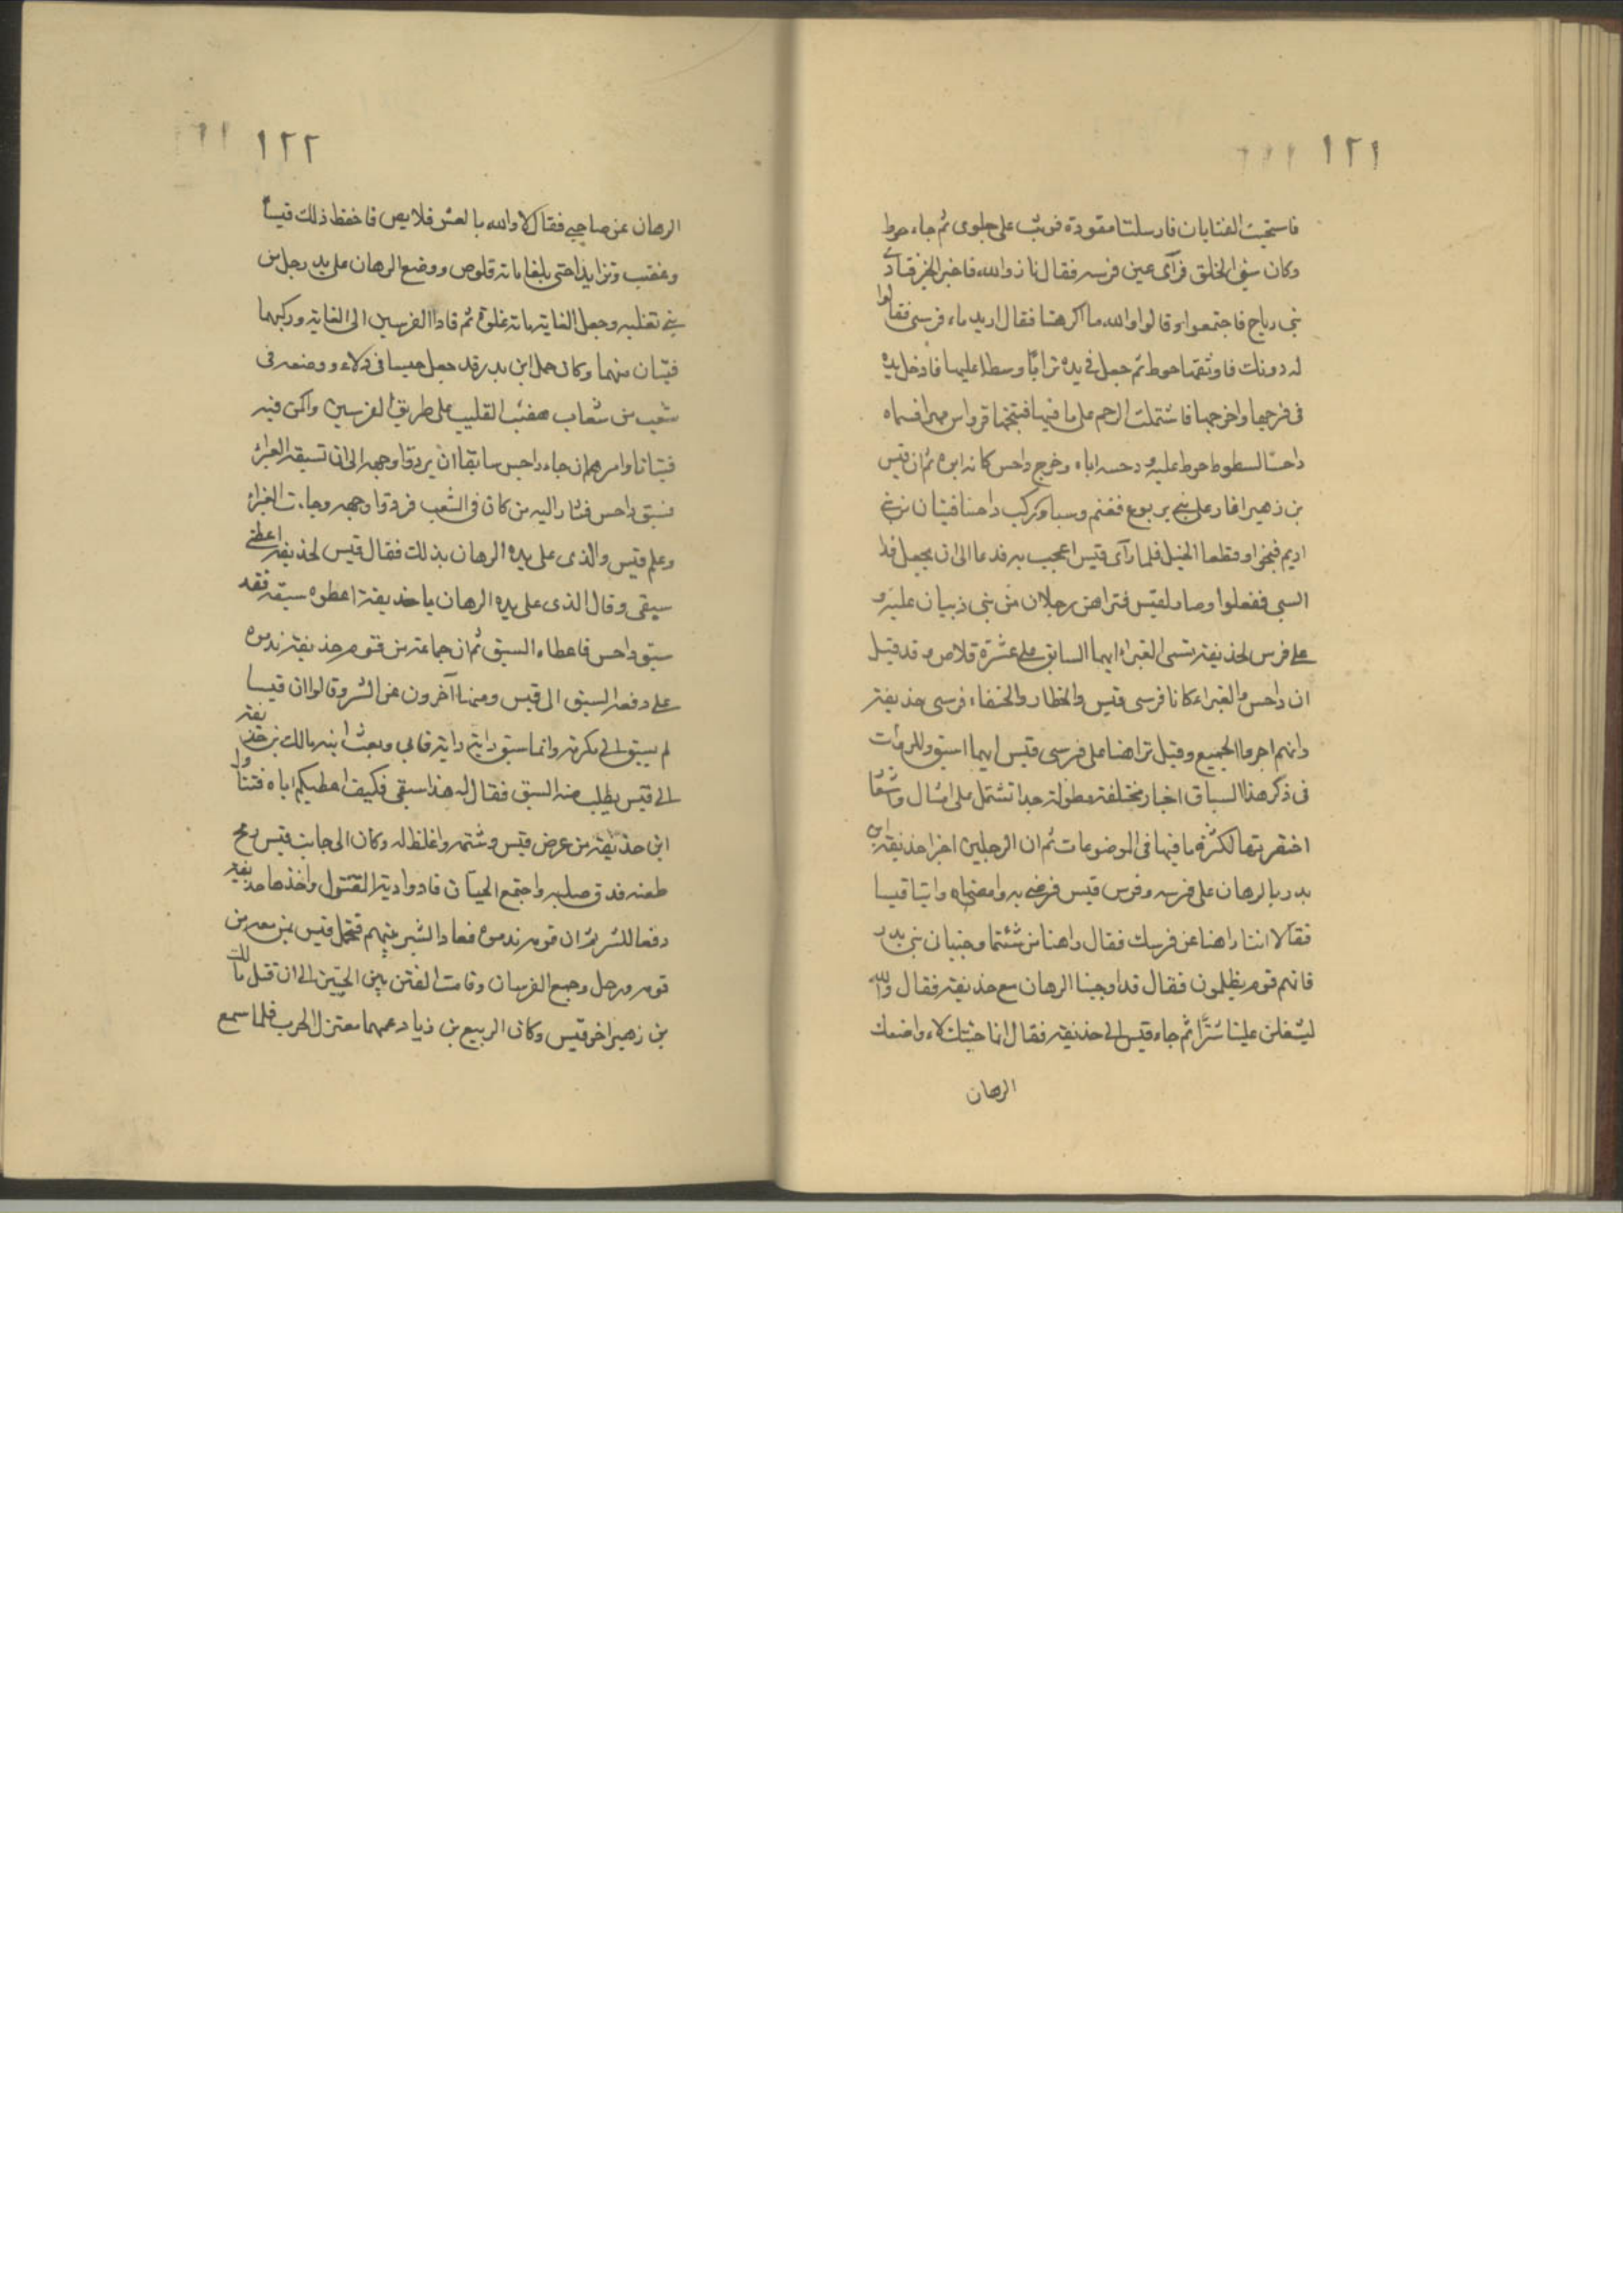 ١٢١
فاستحيت الفتاتان فارسلتا مقودة فوثب على جلوى ثم جاء حوط
وكان سئ الخلق فرآى عين فرسه فقال نزا والله فاخبر الخبر فنادى
بنى رياح فاجتمعوا وقالوا والله ما اكرهنا فقال اريد ماء فرسى فقالوا
له دونك فاوثقها حوط ثم جعل فى يده ترابًا وسطا عليها فادخل يده
فى فرجها واخرجها فاشتملت الرحم على ما فيها فنتجها قرواش مهرا فسماه
داحسًا لسطو حوط عليه ودحسه اياه وخرج داحس كانه ابوه ثم ان قيس
بن زهير اغار على بنى يربوع فغنم وسبا وركب داحسا فتيان من بنى
ازيم فنجوا وقطعا الخيل فلما رآى قيس اعجب به فدعا الى ان يجعل فدا
السبى ففعلوا وصار لقيس فتراهن رجلان من بنى ذبيان عليه و
على فرس لحذيفة تسمى الغبراء ايهما السابق على عشرة قلاص وقد قيل
ان داحس والغبراء كانا فرسى قيس والخطار والحنفاء فرسى حذيفة
وانهم اجروا الجميع وقيل تراهنا على فرسى قيس ايهما اسبق وللروات
فى ذكر هذا السباق اخبار مختلفة مطولة جدا تشتمل على امثال واشعار
اختصرتها لكثرة ما فيها فى الموضوعات ثم ان الرجلين اخبرا حذيفة ابن
بدر بالرهان على فرسه وفرس قيس فرضى به وامضاه واتيا قيسا
فقالا اننا راهنا عن فرسك فقال راهنا من شئتما وجنبانى بنى بدر
فانهم قوم يظلمون فقال قد اوجبنا الرهان مع حذيفة فقال والله
ليشعلن علينا شرًا ثم جاء قيس الى حذيفة فقال انما جئتك لاواضعك
الرهان
١٢٢
الرهان عن صاحبى فقال لا والله بالعشر قلايص فاحفظ ذلك قيسًا
وغضب وتزايدا حتى بلغا ماية قلوص ووضع الرهان على يد رجل من
بنى تغلبه وجعل الغاية ماية غلوة ثم قادا الفرسين الى الغاية وركبهما
فتيان منهما وكان حمل ابن بدر قد جعل حيسا فى دلاء ووضعه فى
شعب من شعاب هضب القليب على طريق الفرسين واكمن فيه
فتيانا وامرهم ان جاء داحس سابقا ان يردوا وجهه الى ان تسبقه الغبراء
فسبق داحس فثار اليه من كان فى الشعب فردوا وجهه وجاءت الغبراء
وعلم قيس والذى على يده الرهان بذلك فقال قيس لحذيفة اعطنى
سبقى وقال الذى على يده الرهان يا حذيفة اعطوه سبقه فقد
سبق داحس فاعطاه السبق ثم ان جماعة من قوم حذيفة ندموه
على دفعه السبق الى قيس ومنها آخرون عن الشر وقالوا ان قيسا
لم يسبق الى مكرمة وانما سبق دابته دابة فابى وبعث ابنه مالك بن حذيفة
الى قيس يطلب منه السبق فقال له هذا سبقى فكيف اعطيكم اياه فتناول
ابن حذيفة من عرض قيس وشتمه واغلظ له وكان الى جانب قيس رمح
طعنه فدق صلبه واجتمع الحيان فادوا دية المقتول واخذها حذيفة
دفعا للشر ثم ان قومه ندموه فعاد الشر بينهم فتحمل قيس بمن معه من
قومه ورحل وجمع الفرسان وقامت الفتن بين الحيين الى ان قتل مالك
بن زهير اخو قيس وكان الربيع بن زياد عمهما معتزل الحرب فلما سمع